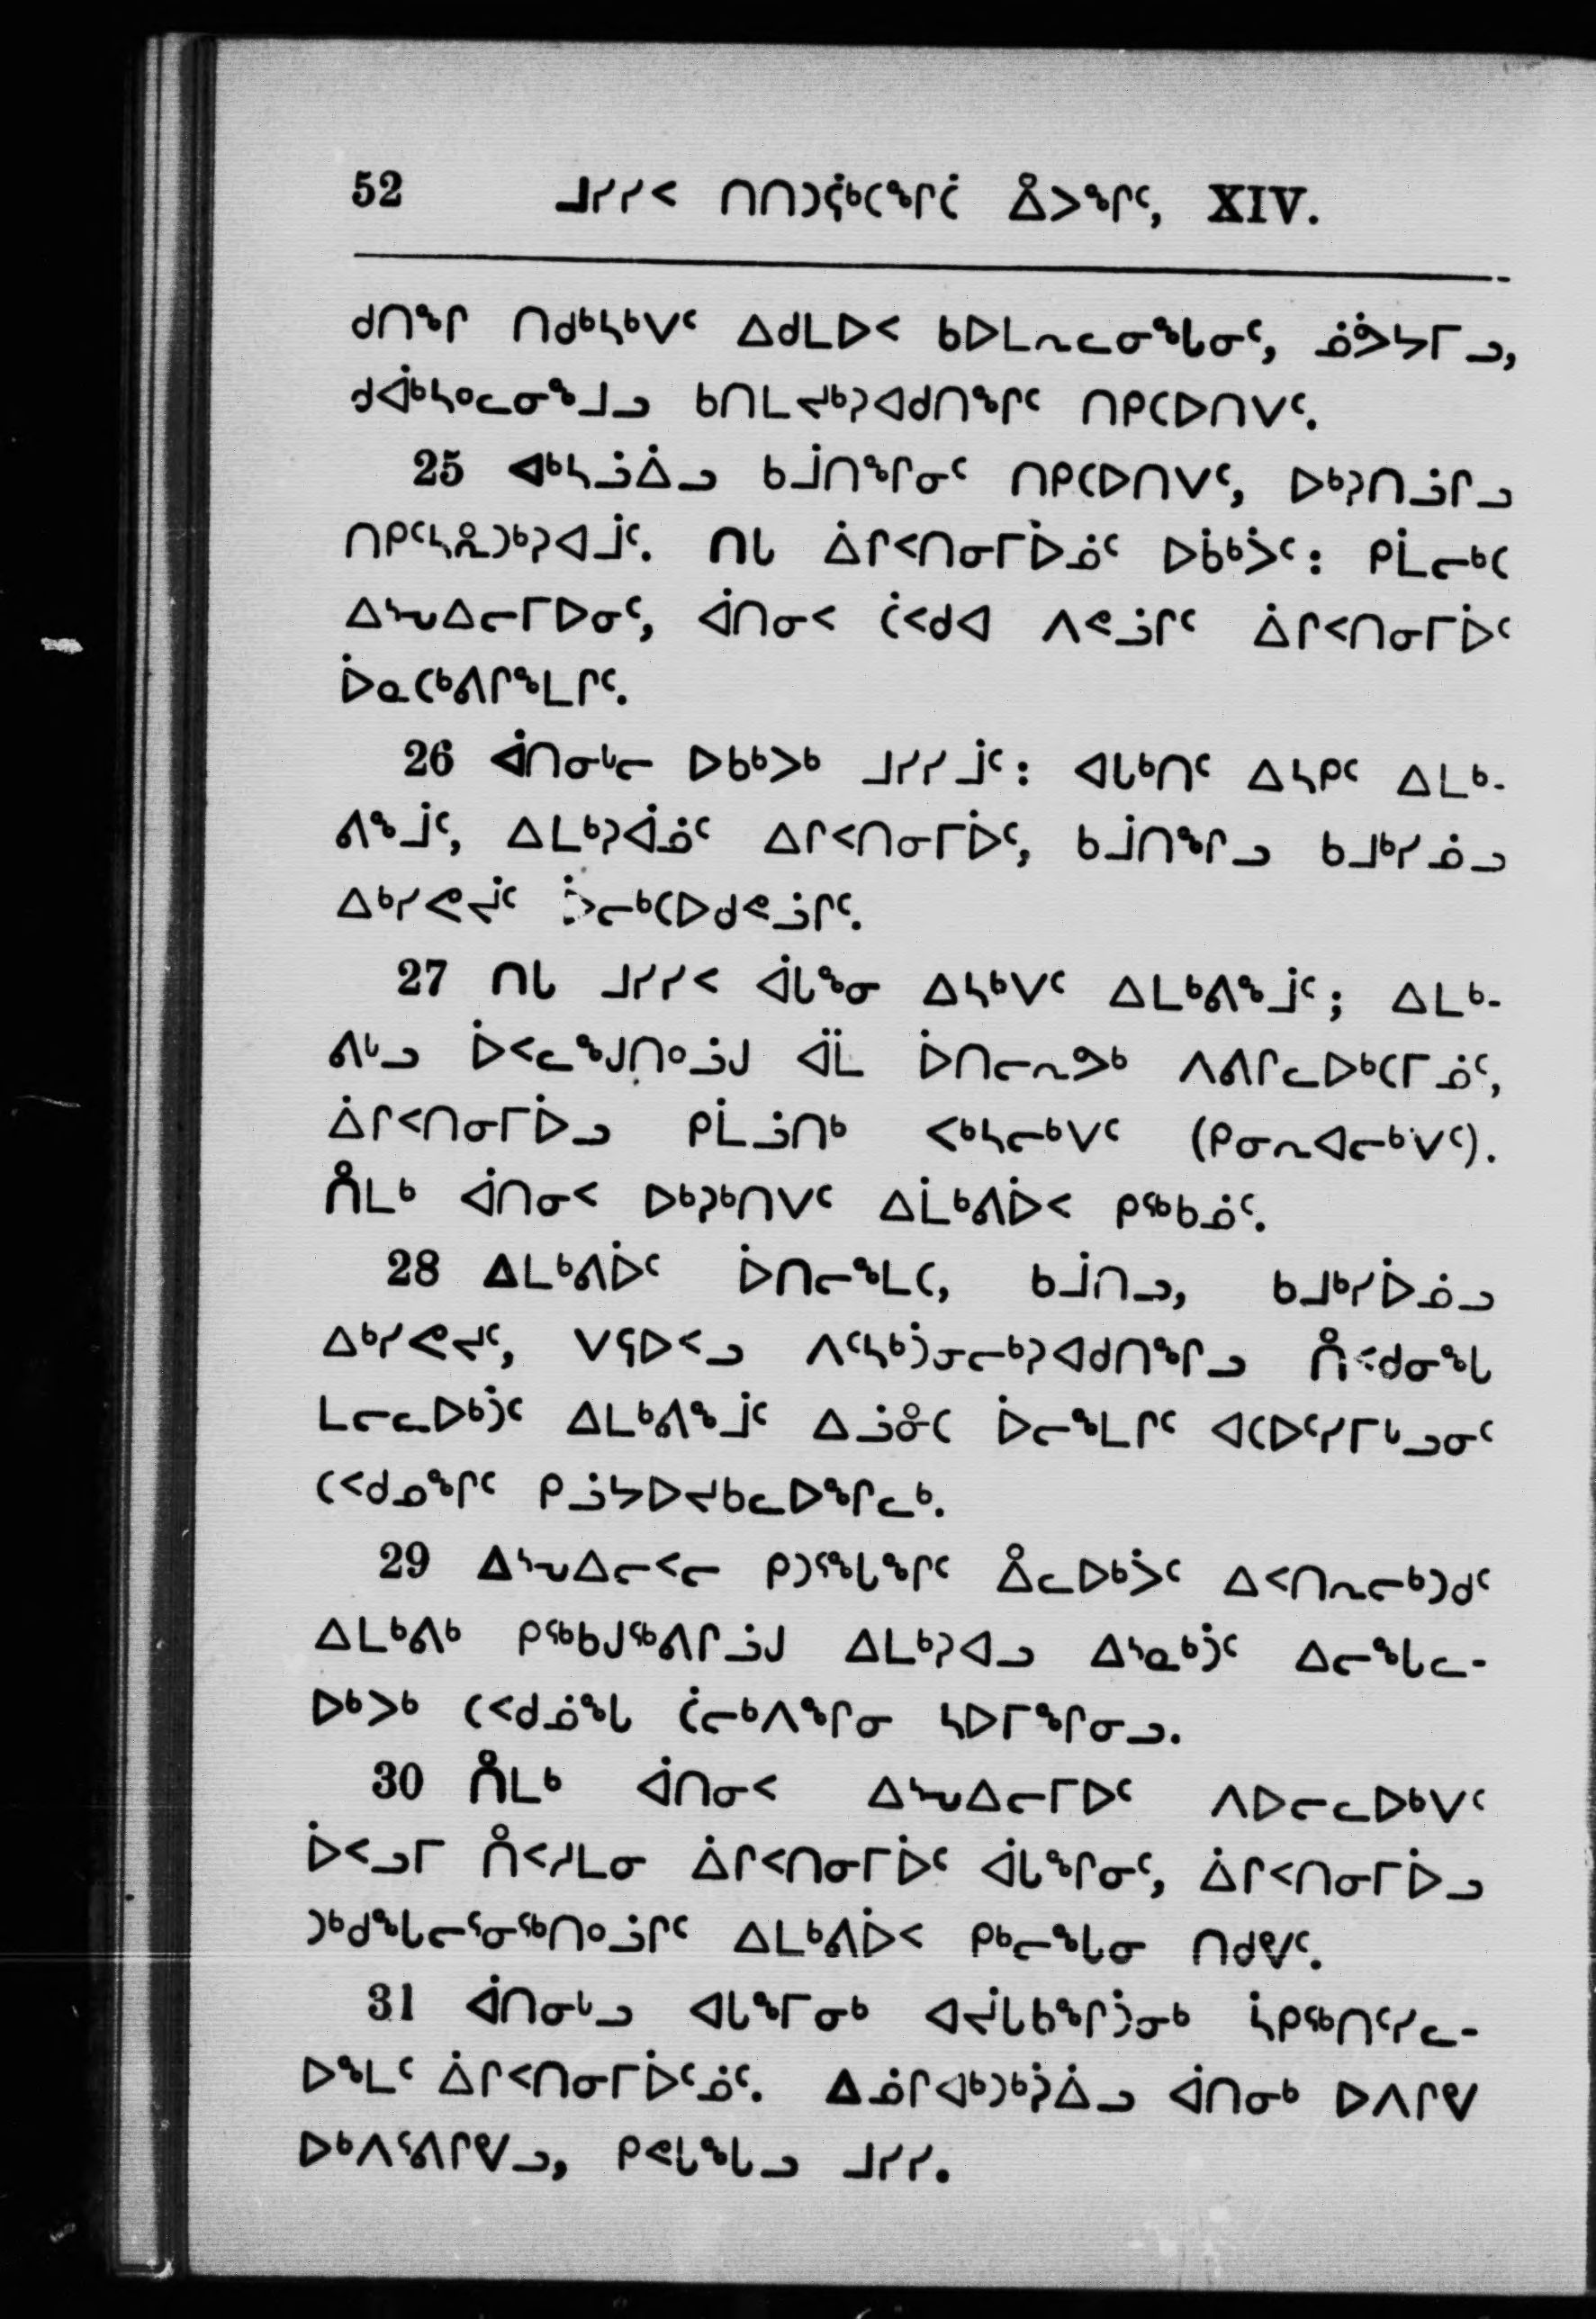 52 ᒧᓯᓯᑉ ᑎᑎᑐᕌᒃᑕᖕᒋᑖ ᐄᐳᖕᒋᑦ, XIV.
ᑯᑎᖕᒋ ᑎᑯᒃᓴᒃᐯᑦ ᐃᑯᒪᐅᑉ ᑲᐅᒪᓗᓚᓂᖕᒐᓂᑦ, ᓅᕘᔭᒥᓗ,
ᑯᐋᒃᓴᐤᓚᓂᖕᒧᓗ ᑲᑎᒪᔪᒃᓱᐊᑯᑎᖕᒋᑦ ᑎᑭᑕᐅᑎᐯᑦ.
25 ᐊᒃᓴᓘᐄᓗ ᑲᒨᑎᖕᒋᓂᑦ ᑎᑭᑕᐅᑎᐯᑦ, ᐅᒃᓱᑎᓘᒋᓗ
ᑎᑭᑦᓴᐃᑐᒃᓱᐊᒨᑦ. ᑎᒐ ᐄᒋᑉᑎᓂᒥᐆᓅᑦ ᐅᑳᒃᐴᑦ: ᑭᒫᓕᒃᑕ
ᐃᔅᕋᐃᓕᒥᐅᓂᑦ, ᐋᑎᓂᑉ ᑖᑉᑯᐊ ᐱᕙᓘᒋᑦ ᐄᒋᑉᑎᓂᒥᐆᑦ
ᐆᓇᑕᒃᕕᒋᖕᒪᒋᑦ.
26 ᐋᑎᓂᒡᓕ ᐅᑲᒃᐳᒃ ᒧᓯᓯᒨᑦ: ᐊᒐᒃᑎᑦ ᐃᓴᑭᑦ ᐃᒪᒃ-
ᕕᖕᒨᑦ, ᐃᒪᒃᓱᐋᓅᑦ ᐃᒋᑉᑎᓂᒥᐆᑦ, ᑲᒨᑎᖕᒋᓗ ᑲᒧᒃᓯᓅᓗ
ᐃᒃᓯᕙᔫᑦ ᐴᓕᒃᑕᐅᑯᕙᓘᒋᑦ.
27 ᑎᒐ ᒧᓯᓯᑉ ᐋᒐᖕᓂ ᐃᓴᒃᐯᑦ ᐃᒪᒃᕕᖕᒨᑦ; ᐃᒪᒃ-
ᕕᒡᓗ ᐆᑉᓚᖕᒍᑎᐤᓘᒍ ᐋᒫ ᐆᑎᓕᓗᕗᒃ ᐱᕕᒋᓚᐅᒃᑕᒥᓅᑦ,
ᐄᒋᑉᑎᓂᒥᐆᓗ ᑭᒫᓘᑎᒃ ᐸᒃᓴᓕᒃᐯᑦ (ᑭᓂᓗᐊᓕᒃᐯᑦ).
ᑏᒪᒃ ᐋᑎᓂᑉ ᐅᒃᓱᒃᑎᐯᑦ ᐃᒫᒃᕕᐆᑉ ᑭᖅᑲᓅᑦ.
28 ᐃᒪᒃᕕᐆᑦ ᐆᑎᓕᖕᒪᑕ, ᑲᒨᑎᓗ, ᑲᒧᒃᓯᐆᓅᓗ
ᐃᒃᓯᕙᔪᑦ, ᐯᕋᐅᑉᓗ ᐱᑦᓴᒃᑑᓂᓕᒃᓱᐊᑯᑎᖕᒋᓗ ᑏᑉᑯᓂᖕᒐ
ᒪᓕᓚᐅᒃᑑᑦ ᐃᒪᒃᕕᖕᒨᑦ ᐃᓘᓐᑕ ᐆᓕᖕᒪᒋᑦ ᐊᑕᐅᑦᓯᒥᒡᓗᓂᑦ
ᑕᑉᑯᓄᖕᒋᑦ ᑭᓘᔭᐅᔪᑲᓚᐅᖕᒋᓚᒃ.
29 ᐃᔅᕋᐃᓕᑉᓕ ᑭᑐᕐᖕᒐᖕᒋᑦ ᐄᓚᐅᒃᐴᑦ ᐃᑉᑎᓗᓕᒃᑐᑯᑦ
ᐃᒪᒃᕕᒃ ᑭᖅᑲᒍᖅᕕᒋᓘᒍ ᐃᒪᒃᓱᐊᓗ ᐃᔅᓇᒃᑑᑦ ᐃᓕᖕᒐᓚ-
ᐅᒃᐳᒃ ᑕᑉᑯᓅᖕᒐ ᑖᓕᒃᐱᖕᒋᓂ ᓴᐅᒥᖕᒋᓂᓗ.
30 ᑏᒪᒃ ᐋᑎᓂᑉ ᐃᔅᕋᐃᓕᒥᐅᑦ ᐱᐅᓕᓚᐅᒃᐯᑦ
ᐆᑉᓗᒥ ᑏᑉᓱᒪᓂ ᐄᒋᑉᑎᓂᒥᐆᑦ ᐋᒐᖕᒋᓂᑦ, ᐄᒋᑉᑎᓂᒥᐆᓗ
ᑐᒃᑯᖕᒐᓕᕐᓂᖅᑎᐤᓘᒋᑦ ᐃᒪᒃᕕᐆᑉ ᑭᒃᓕᖕᒐᓂ ᑎᑯᕓᑦ.
31 ᐋᑎᓂᒡᓗ ᐊᒐᖕᒥᓂᒃ ᐊᔫᒐᑲᖕᒋᑑᓂᒃ ᓵᑭᖅᑎᑦᓯᓚ-
ᐅᖕᒪᑦ ᐄᒋᑉᑎᓂᒥᐆᑦᓅᑦ. ᐃᓅᒋᐊᒃᑐᒃᓲᐄᓗ ᐋᑎᓂᒃ ᐅᐱᒋᕓ
ᐅᒃᐱᕐᕕᒋᕓᓗ, ᑭᕙᒐᖕᒐᓗ ᒧᓯᓯ.